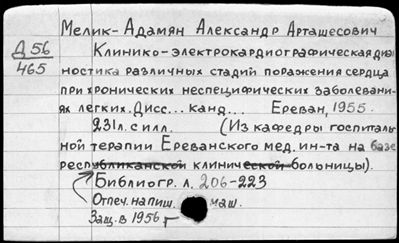 Мелик-Адамян Александр Арташесович
Д 56
465
Клинико-электрокардиографическая диаг
ностика различных стадий поражения сердца
при хронических неспецифических заболевани-
ях легких. Дисс... канд... Ереван, 1955.
231 л. с илл. (Из кафедры госпиталь
ной терапии Ереванского мед. ин-та на базе
республиканской клинической больницы).
Библиогр. л. 206-223
Отпеч. на пиш. маш.
Защ. в 1956 г